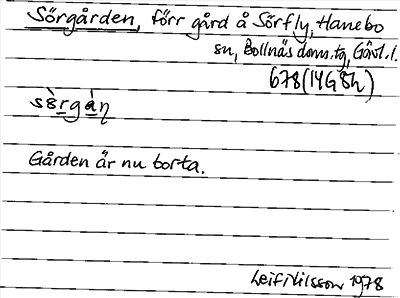 Sörgården, förr gård å Sörfly, Hanebo
sn, Bollnäs doms.tg, Gävl.l.
678(14G8h)
sö̀rgá̠ṇ
Gården är nu borta.
Leif Nilsson 1978